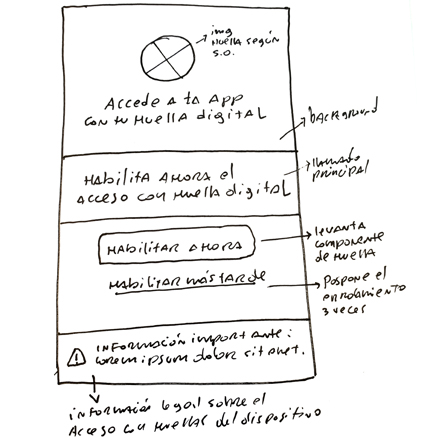 img
Huella según
S.O.
Accede a tu App
con tu Huella digital
background
Habilita ahora el
acceso con Huella digital
llamado
principal
Habilitar ahora
levanta
componente
de Huella
Habilitar más tarde
Pospone el
enrolamiento
3 veces
Información importante:
Lorem ipsum dolor sit amet.
información legal sobre el
Acceso con Huellas del dispositivo